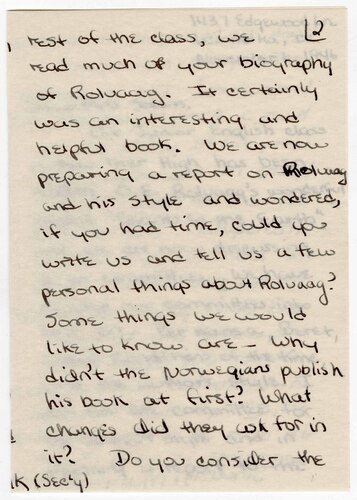 2
rest of the class, we
read much of your biography
of Rolvaag. It certainly
was an interesting and
helpful book. We are now
preparing a report on Rolvaag
and his style and wondered,
if you had time, could you
write us and tell us a few
personal things about Rolvaag?
Some things we would
like to know are — Why
didn't the Norwegians publish
his book at first? What
changes did they ask for in
it? Do you consider the
k (Sec'ty)